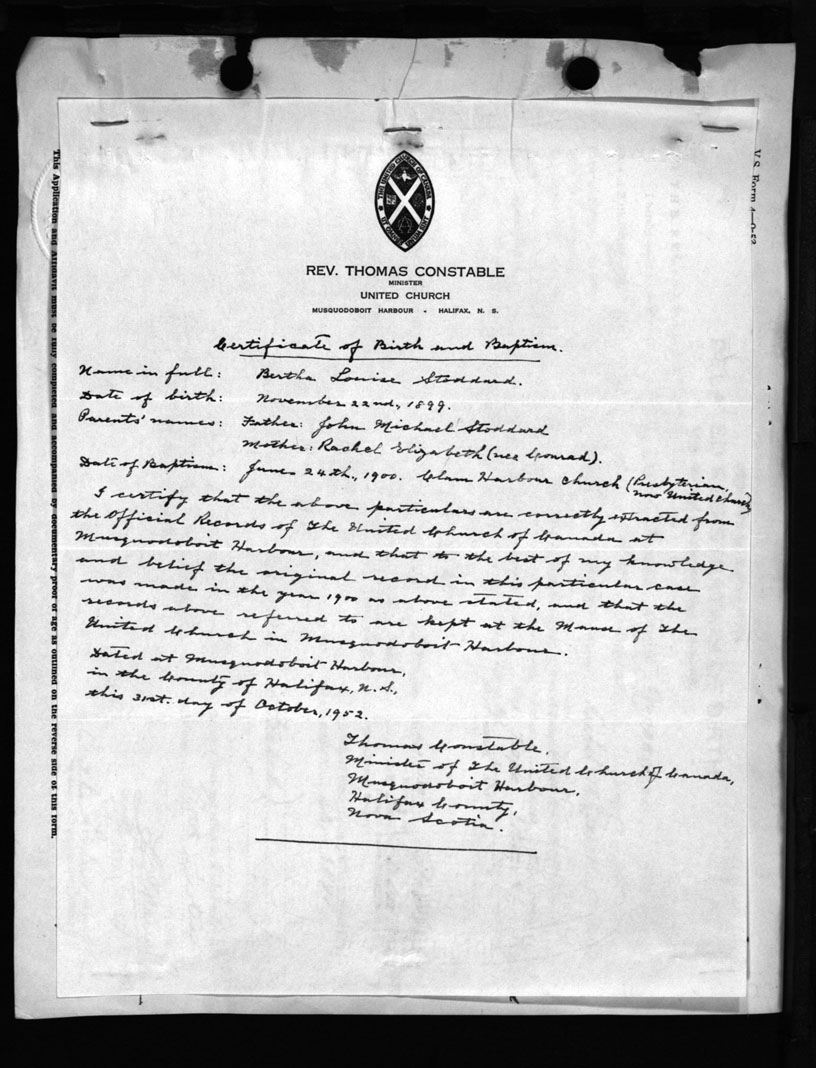 THE UNITED CHURCH OF CANADA
REV. THOMAS CONSTABLE
MINISTER
UNITED CHURCH
MUSQUODOBOIT HARBOUR - HALIFAX, N. S.
Certificate of Birth and Baptism.
Name in full: Bertha Louise Stoddard.
Date of birth: November 22nd., 1899.
Parents' names: Father: John Michael Stoddard
Mother: Rachel Elizabeth (nee Conrad).
Date of Baptism: June 24th., 1900. Clam Harbour Church (Presbyterian,
now United Church)
I certify that the above particulars are correctly extracted from
the Official Records of The United Church of Canada at
Musquodoboit Harbour, and that to the best of my knowledge
and belief the original record in this particular case
was made in the year 1900 as above stated, and that the
records above referred to are kept at the Manse of The
United Church in Musquodoboit Harbour.
Dated at Musquodoboit Harbour,
in the County of Halifax, N.S.,
this 31st. day of October, 1952.
Thomas Constable.
Minister of The United Church of Canada,
Musquodoboit Harbour,
Halifax County,
Nova Scotia.
This Application and Affidavit must be fully completed and accompanied by documentary proof of age as outlined on the reverse side of this form.
V.S. Form